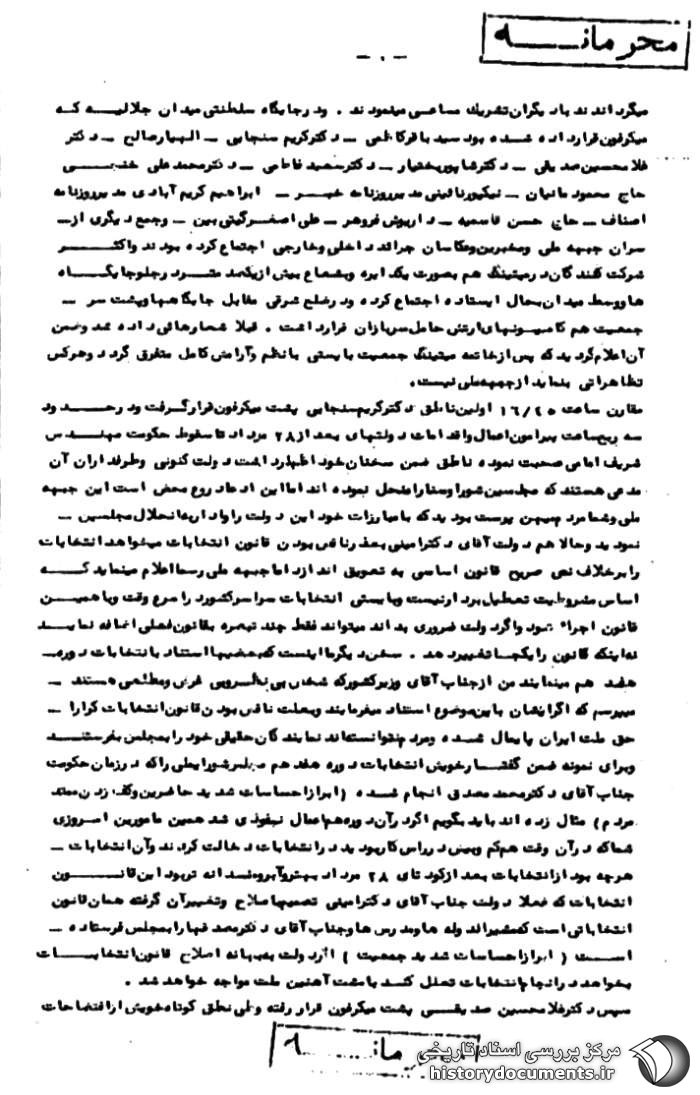 محرمانـــه
میگرداندند بادیگران تشریک مساعی مینمودند . ودرجایگاه سلطنتی میدان جلالیه که
میکرفون قرارداده شده بود سیدباقرکاظمی ـ دکترکریم سنجابی ـ اللهیارصالح ـ دکتر
غلامحسین صدیقی ـ دکترشاپوربختیار ـ دکترسعید فاطمی ـ دکترمحمدعلی خنجی
حاج محمود مانیان ـ نیکپورنائینی مدیرروزنامه خبر ـ ابراهیم کریم آبادی مدیرروزنامه
اصناف ـ حاج حسن قاسمیه ـ داریوش فروهر ـ علی اصغرگیتی بین ـ وجمع دیگری از ـ
سران جبهه ملی ومخبرین وعکاسان جرائد داخلی وخارجی اجتماع کرده بودند واکثر
شرکت کنندگان درمیتینگ هم بصورت یکدایره وبشعاع بیش ازیکصد متردرجلوجایگاه
هاووسط میدان بحال ایستاده اجتماع کرده ودرضلع شرقی مقابل جایگاههاوپشت سر ـ
جمعیت هم کامیونهای ارتش حامل سربازان قرارداشت . قبلا شعارهائی داده شد وضمن
آن اعلام گردید که پس ازخاتمه میتینگ جمعیت بایستی بانظم وآرامش کامل متفرق گردد وهرکس
تظاهراتی بنماید ازجبهه ملی نیست .
مقارن ساعت ۱۶/۴۵ اولین ناطق دکترکریم سنجابی پشت میکرفون قرارگرفت ودرحدود
سه ربع ساعت پیرامون اعمال واقدامات دولتهای بعد از ۲۸ مرداد تاسقوط حکومت مهندس
شریف امامی صحبت نموده ناطق ضمن سخنان خود اظهارداشت دولت کنونی وطرفداران آن
مدعی هستند که مجلسین شوراوسنارامنحل نموده اند امااین ادعادروغ محض است این جبهه
ملی وشمامردم میهن پرست بودید که بامبارزات خود این دولت را وادار به انحلال مجلسین ـ
نمودید وحالا هم دولت آقای دکترامینی بعذرناقص بودن قانون انتخابات میخواهد انتخابات
رابرخلاف نص صریح قانون اساسی به تعویق اندازد اماجبهه ملی رسما اعلام مینماید که
اساس مشروطیت تعطیل بردارنیست وبایستی انتخابات سراسرکشوردر اسرع وقت وباهمین
قانون اجراء شود واگردولت ضروری بداند میتواند فقط چند تبصره بقانون فعلی اضافه نماید
نه اینکه قانون رایکجا تغییردهد . سخن دیگرمااینست که بعضیها استناد بانتخابات دوره ـ
هفدهم مینمایند من ازجناب آقای وزیرکشورکه شخص بی نظروبی غرض ومطلعی هستند ـ
میپرسم که اگرایشان باین موضوع استناد میفرمایند وبعلت ناقص بودن قانون انتخابات کرارا ـ
حق ملت ایران پایمال شده ومردم نتوانسته اند نمایندگان حقیقی خود رابمجلس بفرستند
وبرای نمونه ضمن گفتارخویش انتخابات دوره هفدهم مجلس شورایملی راکه درزمان حکومت
جناب آقای دکترمحمد مصدق انجام شده ( ابرازاحساسات شدید حاضرین وکف زدن ممتد
مردم ) مثال زده اند باید بگویم اگردرآن دوره هم اعمال نفوذی شد همین مامورین امروزی
شماکه درآن وقت هم کم وبیش درراس کاربودید درانتخابات دخالت کردند وآن انتخابات ـ
هرچه بود ازانتخابات بعد ازکودتای ۲۸ مرداد بهتروآبرومندانه تربود این قانون
انتخابات که فعلا دولت جناب آقای دکترامینی تصمیم باصلاح وتغییرآن گرفته همان قانون
انتخاباتی است که مشیرالدوله هاومدرس هاوجناب آقای دکترمصدقهارابمجلس فرستاده ـ
است ( ابرازاحساسات شدید جمعیت ) اگردولت به بهانه اصلاح قانون انتخابات
بخواهد درانجام انتخابات تعلل کند بامشت آهنین ملت مواجه خواهد شد .
سپس دکترغلامحسین صدیقی پشت میکرفون قرار رفته وطی نطق کوتاه خویش ازافتضاحات
مرکز بررسی اسناد تاریخی
historydocuments.ir